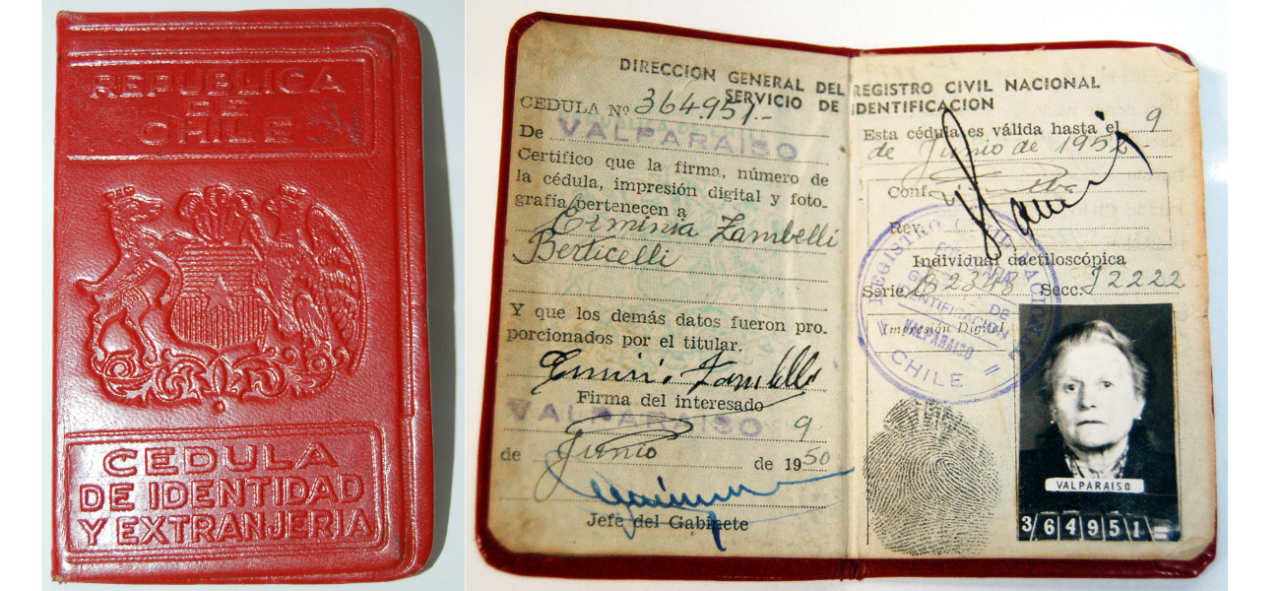 REPUBLICA
DE
CHILE
CEDULA
DE IDENTIDAD
Y EXTRANJERIA
DIRECCION GENERAL DEL REGISTRO CIVIL NACIONAL
SERVICIO DE IDENTIFICACION
CEDULA Nº 364.951.-
De VALPARAISO
Certifico que la firma, número de
la cédula, impresión digital y foto-
grafía pertenecen a
Erminia Zambelli
Berticelli
Y que los demás datos fueron pro-
porcionados por el titular.
Firma del interesado
VALPARAISO 9
de Junio de 1950
Jefe del Gabinete
Esta cédula es válida hasta el 9
de Junio de 195
Conf.
Rev.
Individual dactiloscópica
Serie. Secc. J2222
Impresión Digital
REGISTRO CIVIL
DE
IDENTIFICACION
VALPARAISO
CHILE
VALPARAISO
364951